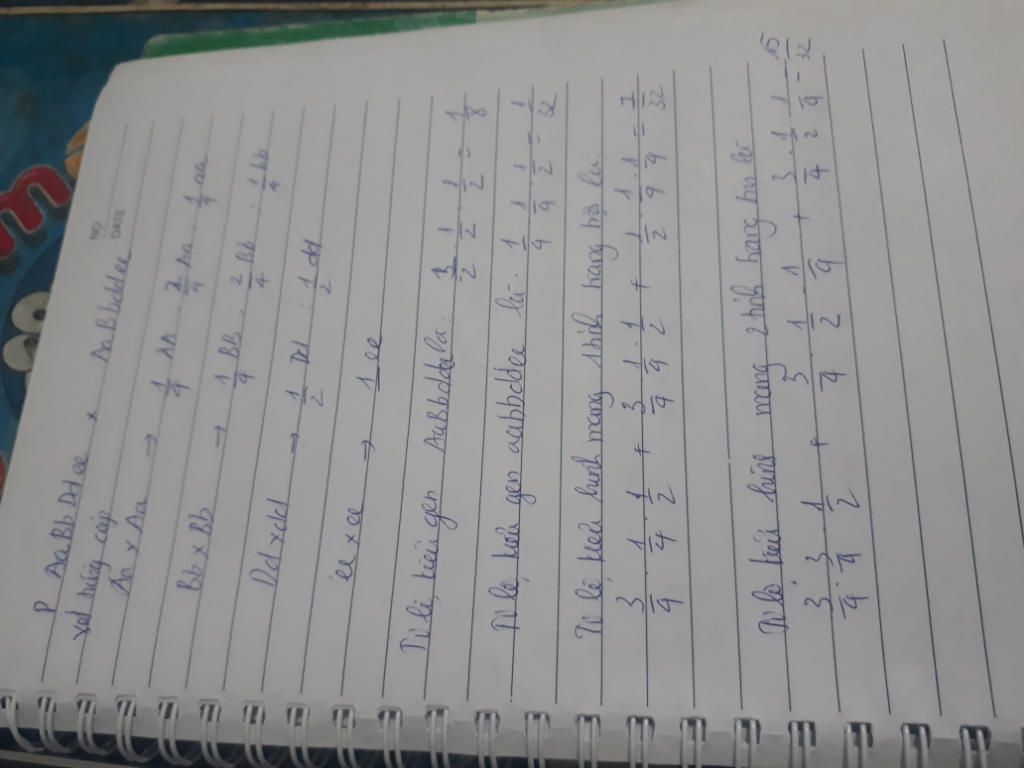 NO
DATE
P AaBb Dd ee x AaBbddee
xét từng cặp
Aa x Aa → 1/4 AA : 2/4 Aa : 1/4 aa
Bb x Bb → 1/4 BB : 2/4 Bb : 1/4 bb
Dd x dd → 1/2 Dd : 1/2 dd
ee x ee → 1 ee
Tỉ lệ kiểu gen AaBbddee là: 1/2 . 1/2 . 1/2 = 1/8
Tỉ lệ kiểu gen aabbddee là: 1/4 . 1/4 . 1/2 = 1/32
Tỉ lệ kiểu hình mang 1 tính trạng trội là:
3/4 . 1/4 . 1/2 + 3/4 . 1/4 . 1/2 + 1/2 . 1/4 . 1/4 = 7/32
Tỉ lệ kiểu hình mang 2 tính trạng trội là
3/4 . 3/4 . 1/2 + 3/4 . 1/2 . 1/4 + 3/4 . 1/2 . 1/4 = 15/32